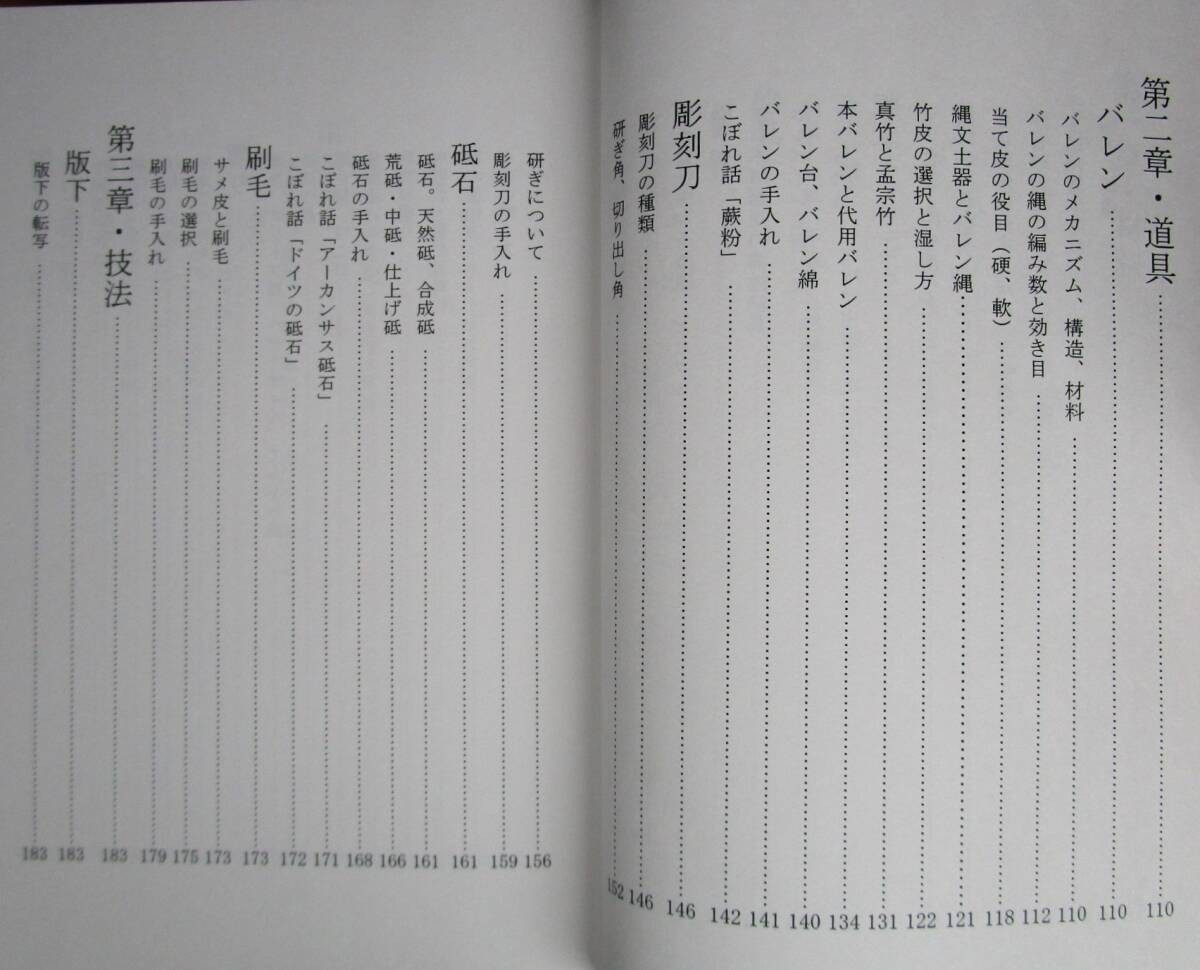 第二章・道具……110
バレン……110
バレンのメカニズム、構造、材料……110
バレンの縄の編み数と効き目……112
当て皮の役目（硬、軟）……118
縄文土器とバレン縄……121
竹皮の選択と湿し方……122
真竹と孟宗竹……131
本バレンと代用バレン……134
バレン台、バレン綿……140
バレンの手入れ……141
こぼれ話「蕨粉」……142
彫刻刀……146
彫刻刀の種類……146
研ぎ角、切り出し角……152
研ぎについて……156
彫刻刀の手入れ……159
砥石……161
砥石。天然砥、合成砥……161
荒砥・中砥・仕上げ砥……166
砥石の手入れ……168
こぼれ話「アーカンサス砥石」……171
こぼれ話「ドイツの砥石」……172
刷毛……173
サメ皮と刷毛……173
刷毛の選択……175
刷毛の手入れ……179
第三章・技法……183
版下……183
版下の転写……183